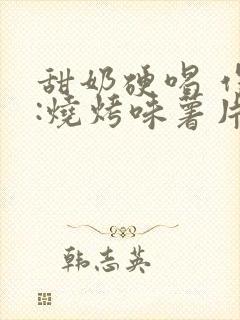 甜奶硬唱
:燒烤味薯片
韩志英